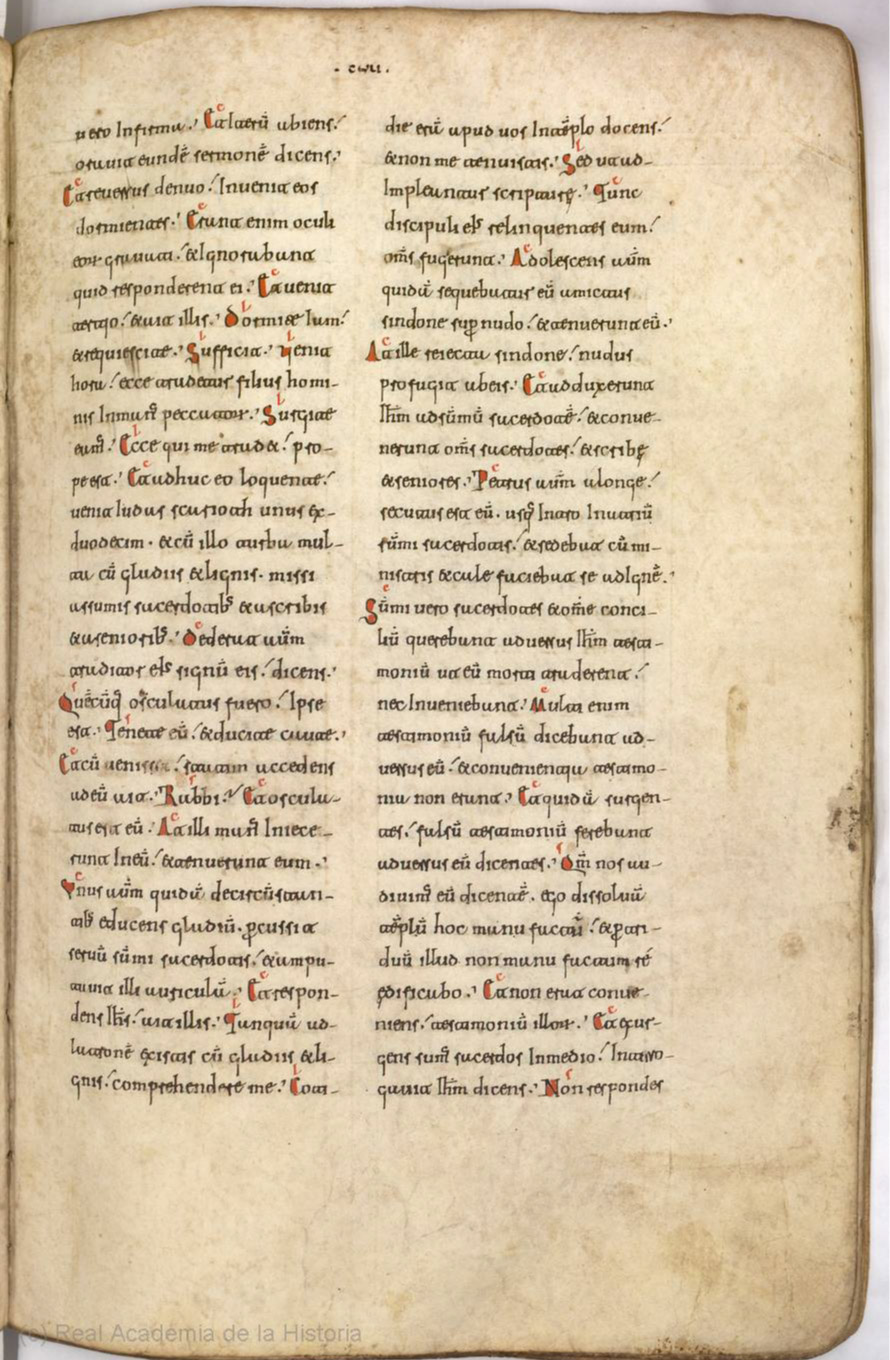 uero Infirma. Et Iterū abiens
orauit eundē sermonē dicens.
Et reuersus denuo. Inuenit eos
dormientes. Erant enim oculi
eorum grauati. & Ignorabant
quid responderent ei. Et uenit
tertio. & ait illis. Dormite Iam.
& requiescite. Sufficit. Uenit
hora. ecce tradetur filius homi-
nis In manus peccatorum. Surgite
eamus. Ecce qui me tradet. pro-
pe est. Et adhuc eo loquente.
uenit Iudas scarioth unus ex
duodecim. & cū illo turba mul-
ta cū gladiis & lignis. missi
a summis sacerdotibs & a scribis
& a seniorib. Dederat autm
traditor eIs signū eis. dicens.
Quecūq osculatus fuero. Ipse
est. Tenete eū. & ducite caute.
Et cū uenisset. statim accedens
ad eū ait. Rabbi. Et oscula-
tus est eū. At illi manus Iniece-
runt In eū. & tenuerunt eum.
Unus autm quidā de circūstan-
tib educens gladiū. percussit
seruū sūmi sacerdotis. & ampu-
tauit illi auriculā. Et respon-
dens Ihs. ait illis. Tanquā ad
latronē existis cū gladiis & li-
gnis. comprehendere me. Coti-
die erā apud uos In templo docens.
& non me tenuistis. Sed ut ad-
Impleantur scripture. Tunc
discipuli eIs relinquentes eum.
omīs fugerunt. Adolescens autm
quidā sequebatur eū amictus
sindone super nudo. & tenuerunt eū.
At ille reiecta sindone. nudus
profugit ab eis. Et adduxerunt
Ihm ad sūmū sacerdotē. & conue-
nerunt omīs sacerdotes. & scribe
& seniores. Petrus autm a longe.
secutus est eū. usq Intro In atriū
sūmi sacerdotis. & sedebat cū mi-
nistris & calefaciebat se ad Ignē.
Sūmi uero sacerdotes & omē conci-
liū querebant aduersus Ihm testi-
moniū ut eū morti traderent.
nec Inueniebant. Multi enim
testimoniū falsū dicebant ad-
uersus eū. & conuenientia testimo-
nia non erant. Et quidā surgen-
tes. falsū testimoniū ferebant
aduersus eū dicentes. Qm nos au-
diuimus eū dicentē. ego dissoluā
templū hoc manu factū. & per tri-
duū illud non manu factum re-
edificabo. Et non erat conue-
niens. testimoniū illorum. Et exur-
gens summus sacerdos In medio. Interro-
gauit Ihm dicens. Non respondes
(c) Real Academia de la Historia